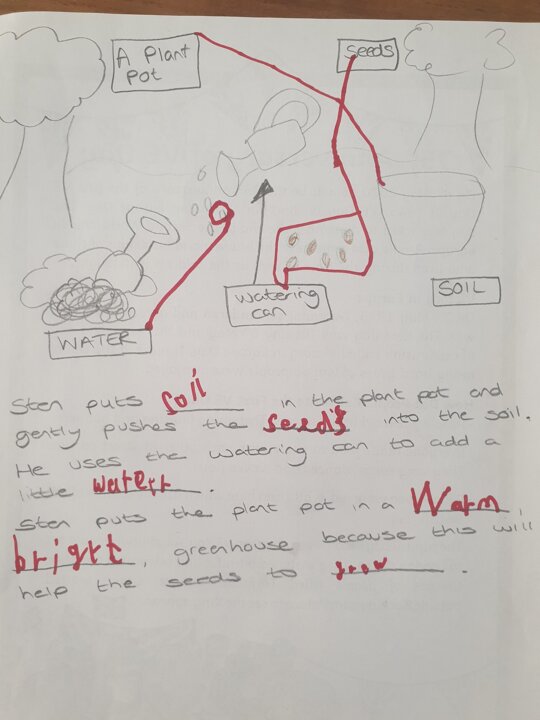 A Plant
Pot
seeds
watering
can
SOIL
WATER
Sten puts soil in the plant pot and
gently pushes the seeds into the soil.
He uses the watering can to add a
little waterr.
Sten puts the plant pot in a Warm,
bright, greenhouse because this will
help the seeds to grow.